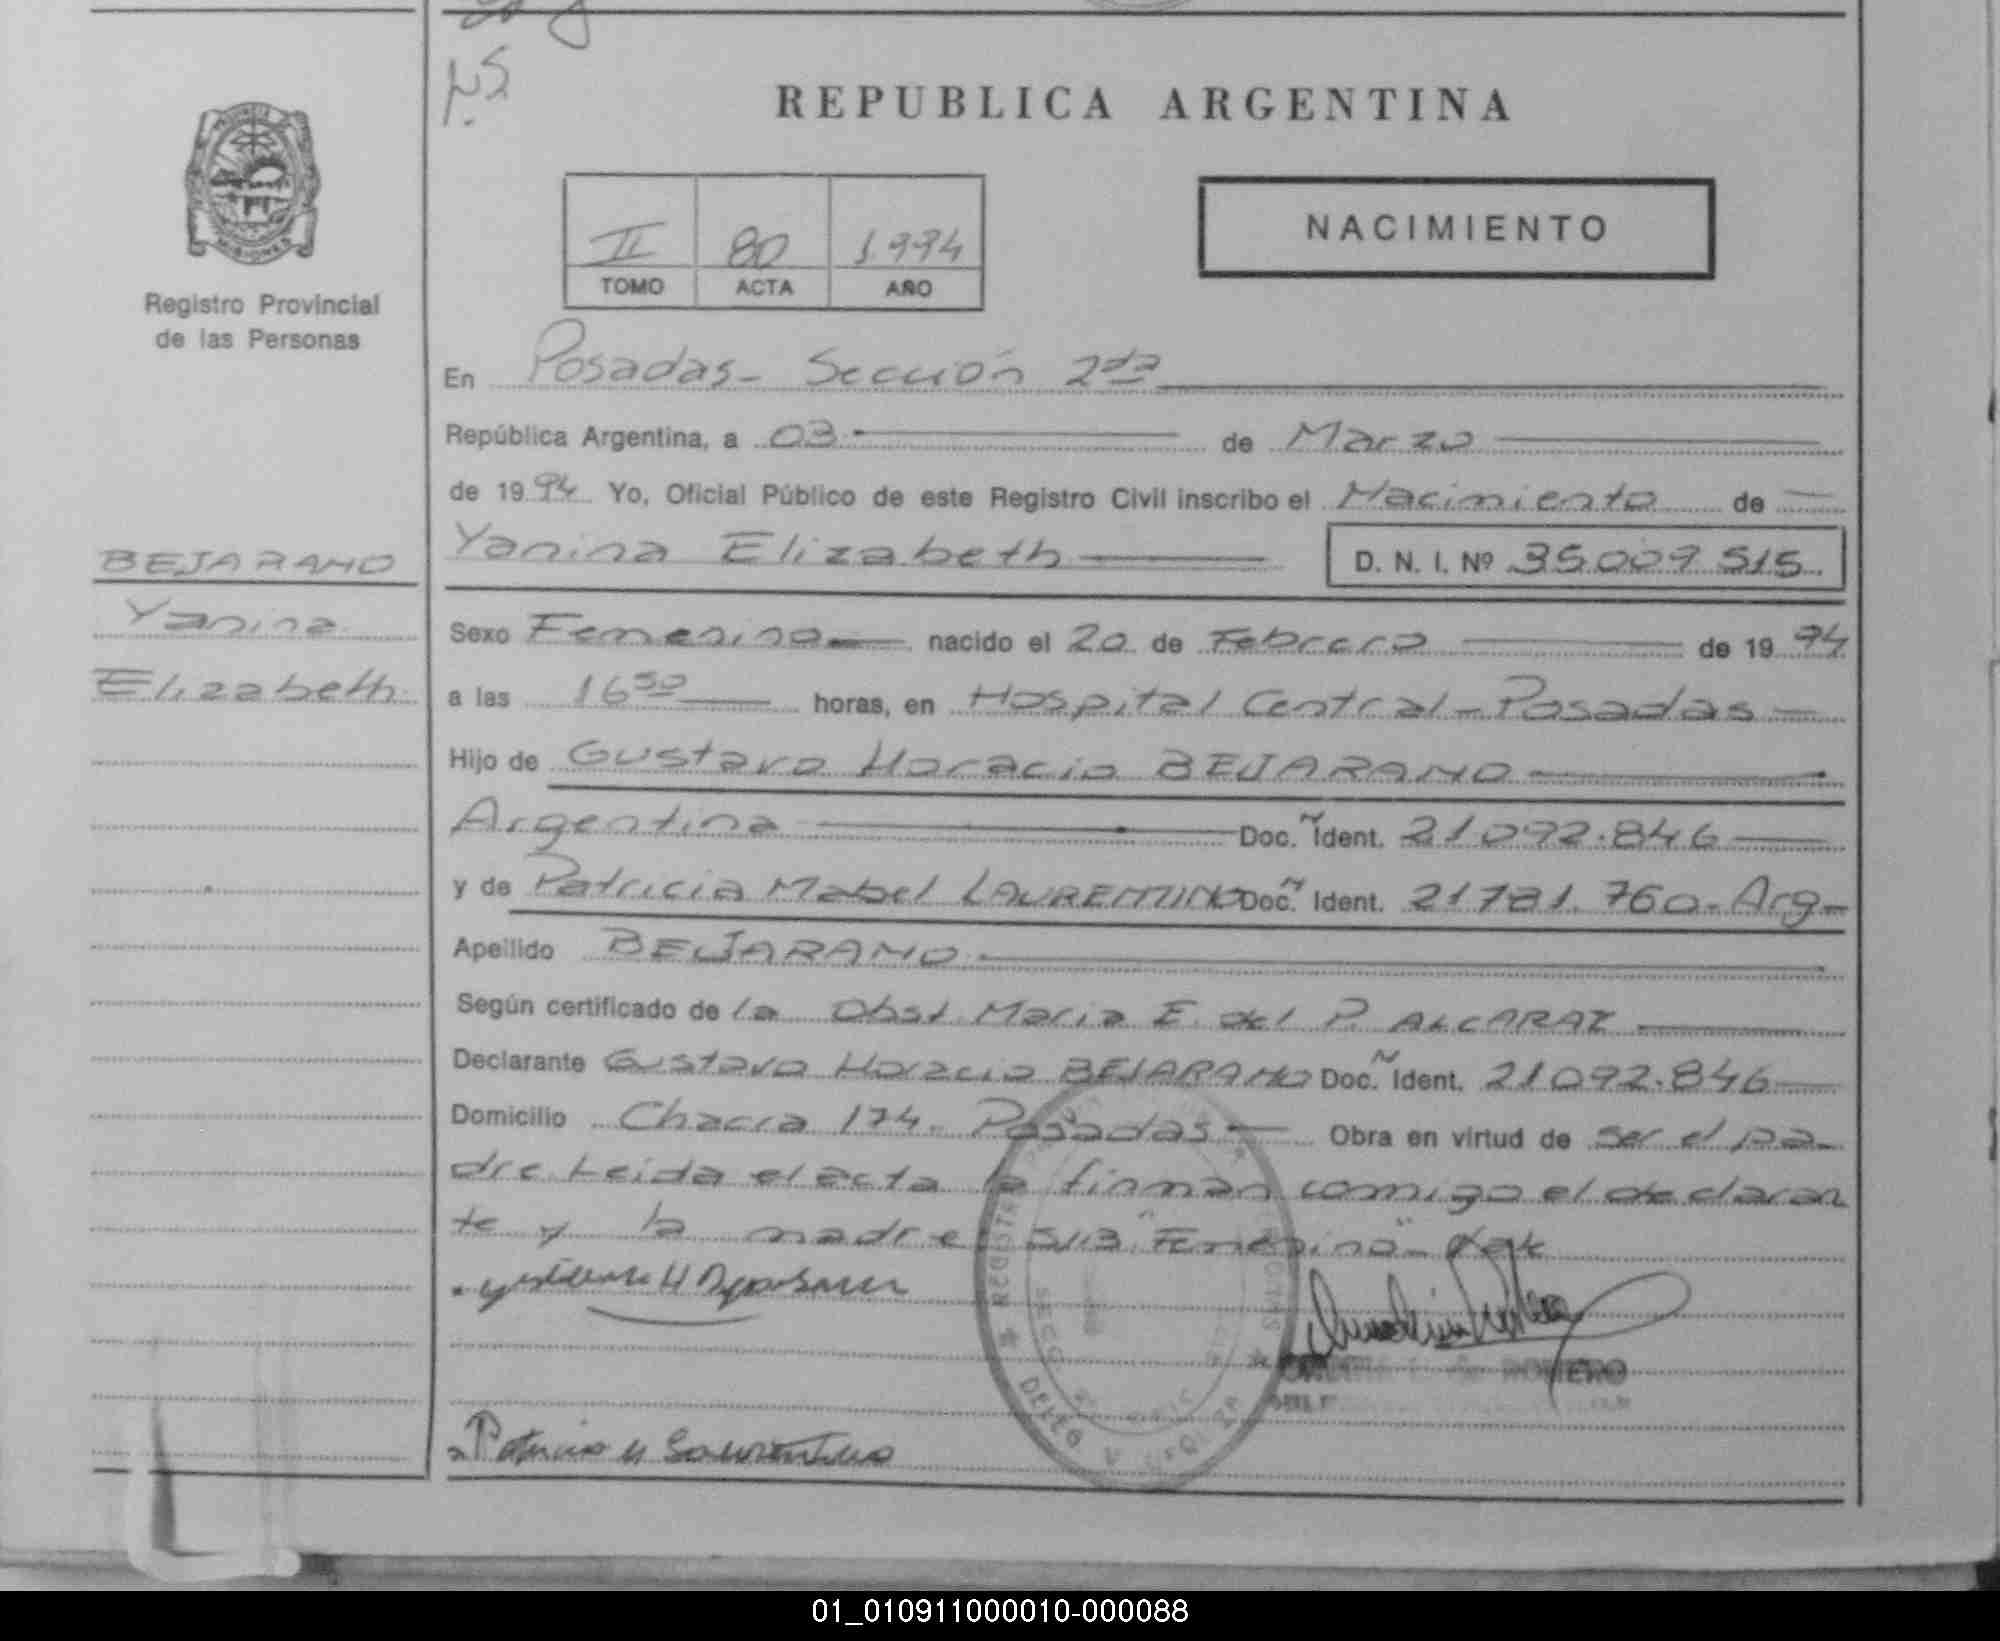 REPUBLICA ARGENTINA
PROVINCIA
MISIONES
Registro Provincial
de las Personas
II 80 1.994
TOMO ACTA AÑO
NACIMIENTO
En Posadas- Sección 2da
República Argentina, a 03 de Marzo
de 1994 Yo, Oficial Público de este Registro Civil inscribo el Nacimiento de
BEJARANO
Yanina
Elizabeth
Yanina Elizabeth D. N. I. Nº 35.009.515
Sexo Femenino nacido el 20 de Febrero de 1994
a las 16 50 horas, en Hospital Central - Posadas -
Hijo de Gustavo Horacio BEJARANO
Argentina Doc. Ñ Ident. 21092.846
y de Patricia Mabel LAURENTINO Doc. Ñ Ident. 21781.760- Arg-
Apellido BEJARANO
Según certificado de la Obst. Maria E. del P. ALCARAZ
Declarante Gustavo Horacio BEJARANO Doc. Ñ Ident. 21092.846
Domicilio Chacra 174- Posadas Obra en virtud de ser el pa-
dre Leida el acta la firman comigo el declaran
te y la madre S/B "Femenino"
ROMERO
01_010911000010-000088